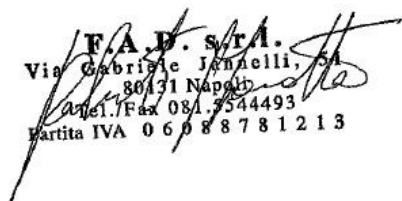 F.A.D. s.r.l.
Via Gabriele Jannelli, 54
80131 Napoli
Tel./Fax 081.5544493
Partita IVA 06088781213